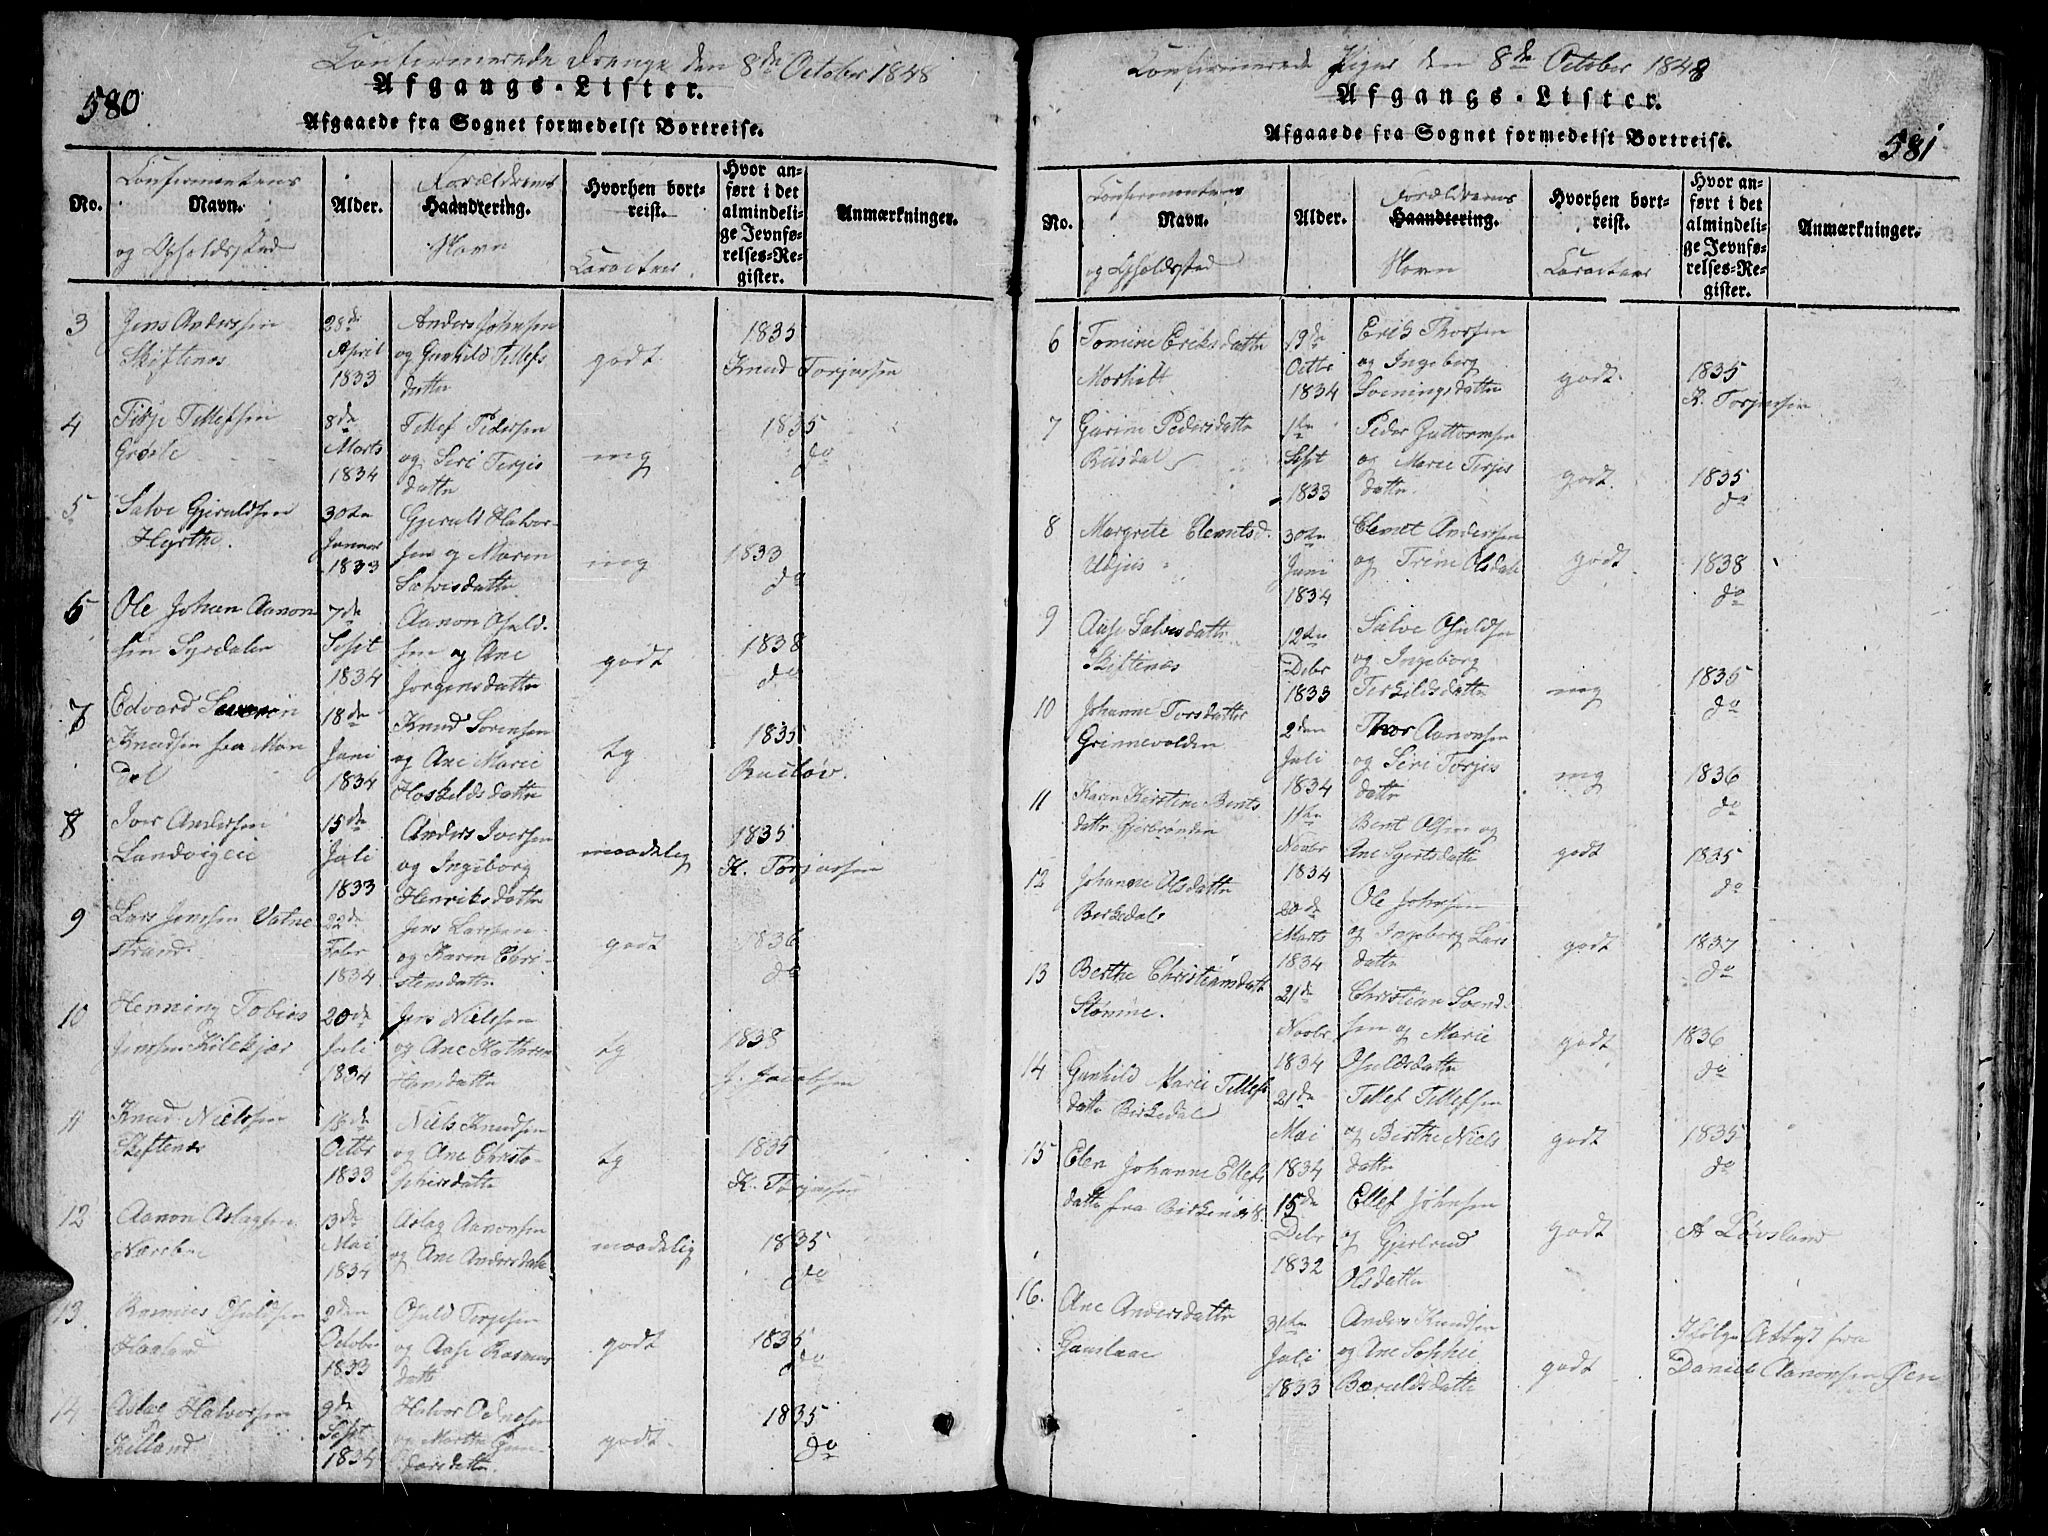 Confirmerede Drenge den 8de October 1848
580
Afgangs-Lister.
Afgaaede fra Sognet formedelst Bortreise.
No.
Confirmentens
Navn.
og Opholdssted
Alder.
Forældrenes
Haandtering.
Navn
Hvorhen bort-
reist.
Caracteer
Hvor an-
ført i det
almindeli-
ge Jevnfø-
relses-Re-
gister.
Anmærkninger.
3
Jens Anderssen
Skiftenes
28de
April
1833
Anders Johnsen
og Gunhild Tellefs
datte
godt
1835
Knud Torjussen
4
Terje Tellefsen
8de
Marts
1834
Tellef Pedersen
og Seri Terjes
datte
mg
1835
do
5
Salve Gjeruldsen
Hyrthe.
30te
Januar
1833
Gjeruld Halvor-
sen og Maren
Salvesdatte
mg
1833
do
6
Ole Johan Aanon
sen Syrdalen
7de
Sept
1834
Aanon Osuld-
sen og Ane
Jorgensdatte
godt
1838
do
7
Edvard Severin
Knudsen fra Man
dal
18de
Juni
1834
Knud Sorensen
og Ane Marie
Hoskeldsdatte
tg
1835
8
Iver Andersen
Landvigeie
15de
Juli
1833
Anders Iversen
og Ingeborg
Henriksdatte
maadelig
1835
K. Torjussen
9
Lars Jenssen Vatne
strand
22de
Febr
1834
Jens Larssen
og Karen Chri-
stensdatte
godt
1836
do
10
Henning Tobias
Jenssen Kilekjær
20de
Juli
1834
Jens Nielssen
og Ane Kathrine
Hansdatte
tg
1838
J. Jacobsen
11
Knud Nielssen
Skiftenes
18de
Octbr
1833
Niels Knudsen
og Ane Christo-
phersdatte
tg
1835
K. Torjussen
12
Aanon Aslagsen
13de
Mai
1834
Aslag Aanonsen
og Ane Andersdatte
maadelig
1835
do
13.
Rasmus Osuldsen
Haaland
2den
October
1833
Osuld Terjesen
og Aase Rasmus
datte
godt
1835
do
14
Aslac Halvorsen
Killand
9de
Sept
1834
Halvor Ednesen
og Marthe Gun-
darsdatte
godt
1835
do
Confirmerede Piger den 8de October 1848
581
Afgangs-Lister.
Afgaaede fra Sognet formedelst Bortreise.
No.
Confirmentens
Navn.
og Opholdssted
Alder.
Forældrenes
Haandtering.
Navn
Hvorhen bort-
reist.
Caracteer
Hvor an-
ført i det
almindeli-
ge Jevnfø-
relses-Re-
gister.
Anmærkninger.
6
Tomine Eriksdatte
Morholt
19de
Octbr
1834
Erik Thorsen
og Ingeborg
Sveningsdatte
godt
1835
K. Torjussen
7
Gurine Pedersdatte
Rusdal
1te
Sept
1833
Peder Guttormsen
og Marie Terjes
datte
godt.
1835
do
8
Margrete Clemetsd.
30te
Juni
1834
Clemet Anderssen
og Trine Olsdatte
godt
1838
do
9
Aase Salvesdatte
Skiftenes
12de
Debr
1833
Salve Osuldsen
og Ingeborg
Terkildsdatte
mg
1835
do
10
Johanne Torsdatter
Grinnevolden
2den
Juli
1834
Thor Aanonsen
og Seri Terjes
datte
mg
1836
do
11
Karen Kirstine Bents
datte Gjerbrønden
11te
Novbr
1834
Bent Olsen og
Ane Gjertsdatte
godt
1835
do
12
Johanne Olsdatte
Berkedal
20de
Marts
1834
Ole Johnsen
og Ingeborg Lars
datte
godt
1837
do
13
Berthe Christiansdatt
Stømme.
21de
Novbr
1834
Christian Svend-
sen og Marie
Osuldsdatte
godt
1836
do
14
Gunhild Marie Tellefs
datte Berkedal
21de
Mai
1834
Tellef Tellefsen
og Berthe Niels
datte
godt
1835
do
15
Elen Johanne Ellefs
datte fra Birkenæs S.
15de
Debr
1832
Ellef Johnsen
og Gjertrud
Olsdatte
godt
A Løvsland
16.
Ane Andersdatte
31te
Juli
1833
Anders Knudsen
og Ane Sophie
Beruldsdatte
godt
Ifølge Attest fra
Daniel Aanonsen Øen